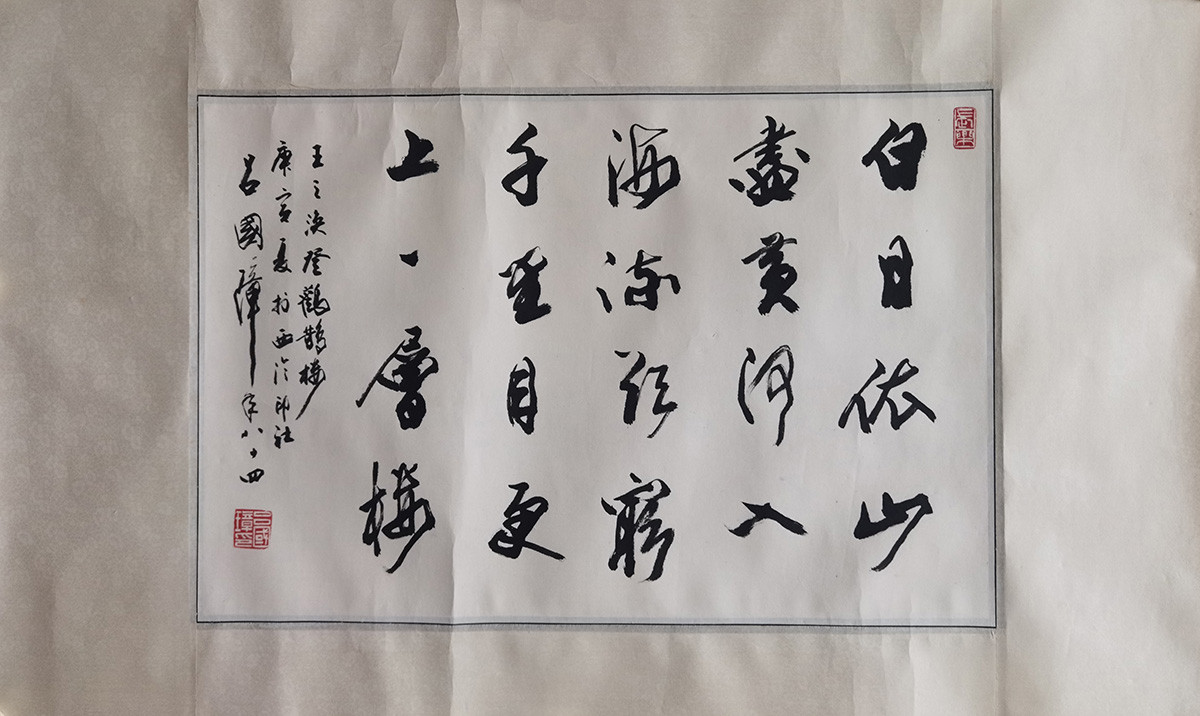 白日依山
盡黃河入
海流欲窮
千里目更
上一層樓
王之渙登鸛鵲樓
庚寅夏於西泠印社
呂國璋年八十四
呂國璋印